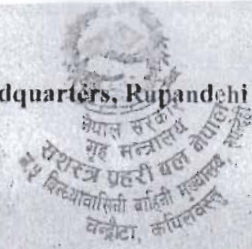 dquarters, Rupandehi
नेपाल सरकार
गृह मन्त्रालय
सशस्त्र प्रहरी बल नेपाल
विन्ध्यवासिनी वाहिनी मुख्यालय
चन्द्रौटा, कपिलवस्तु